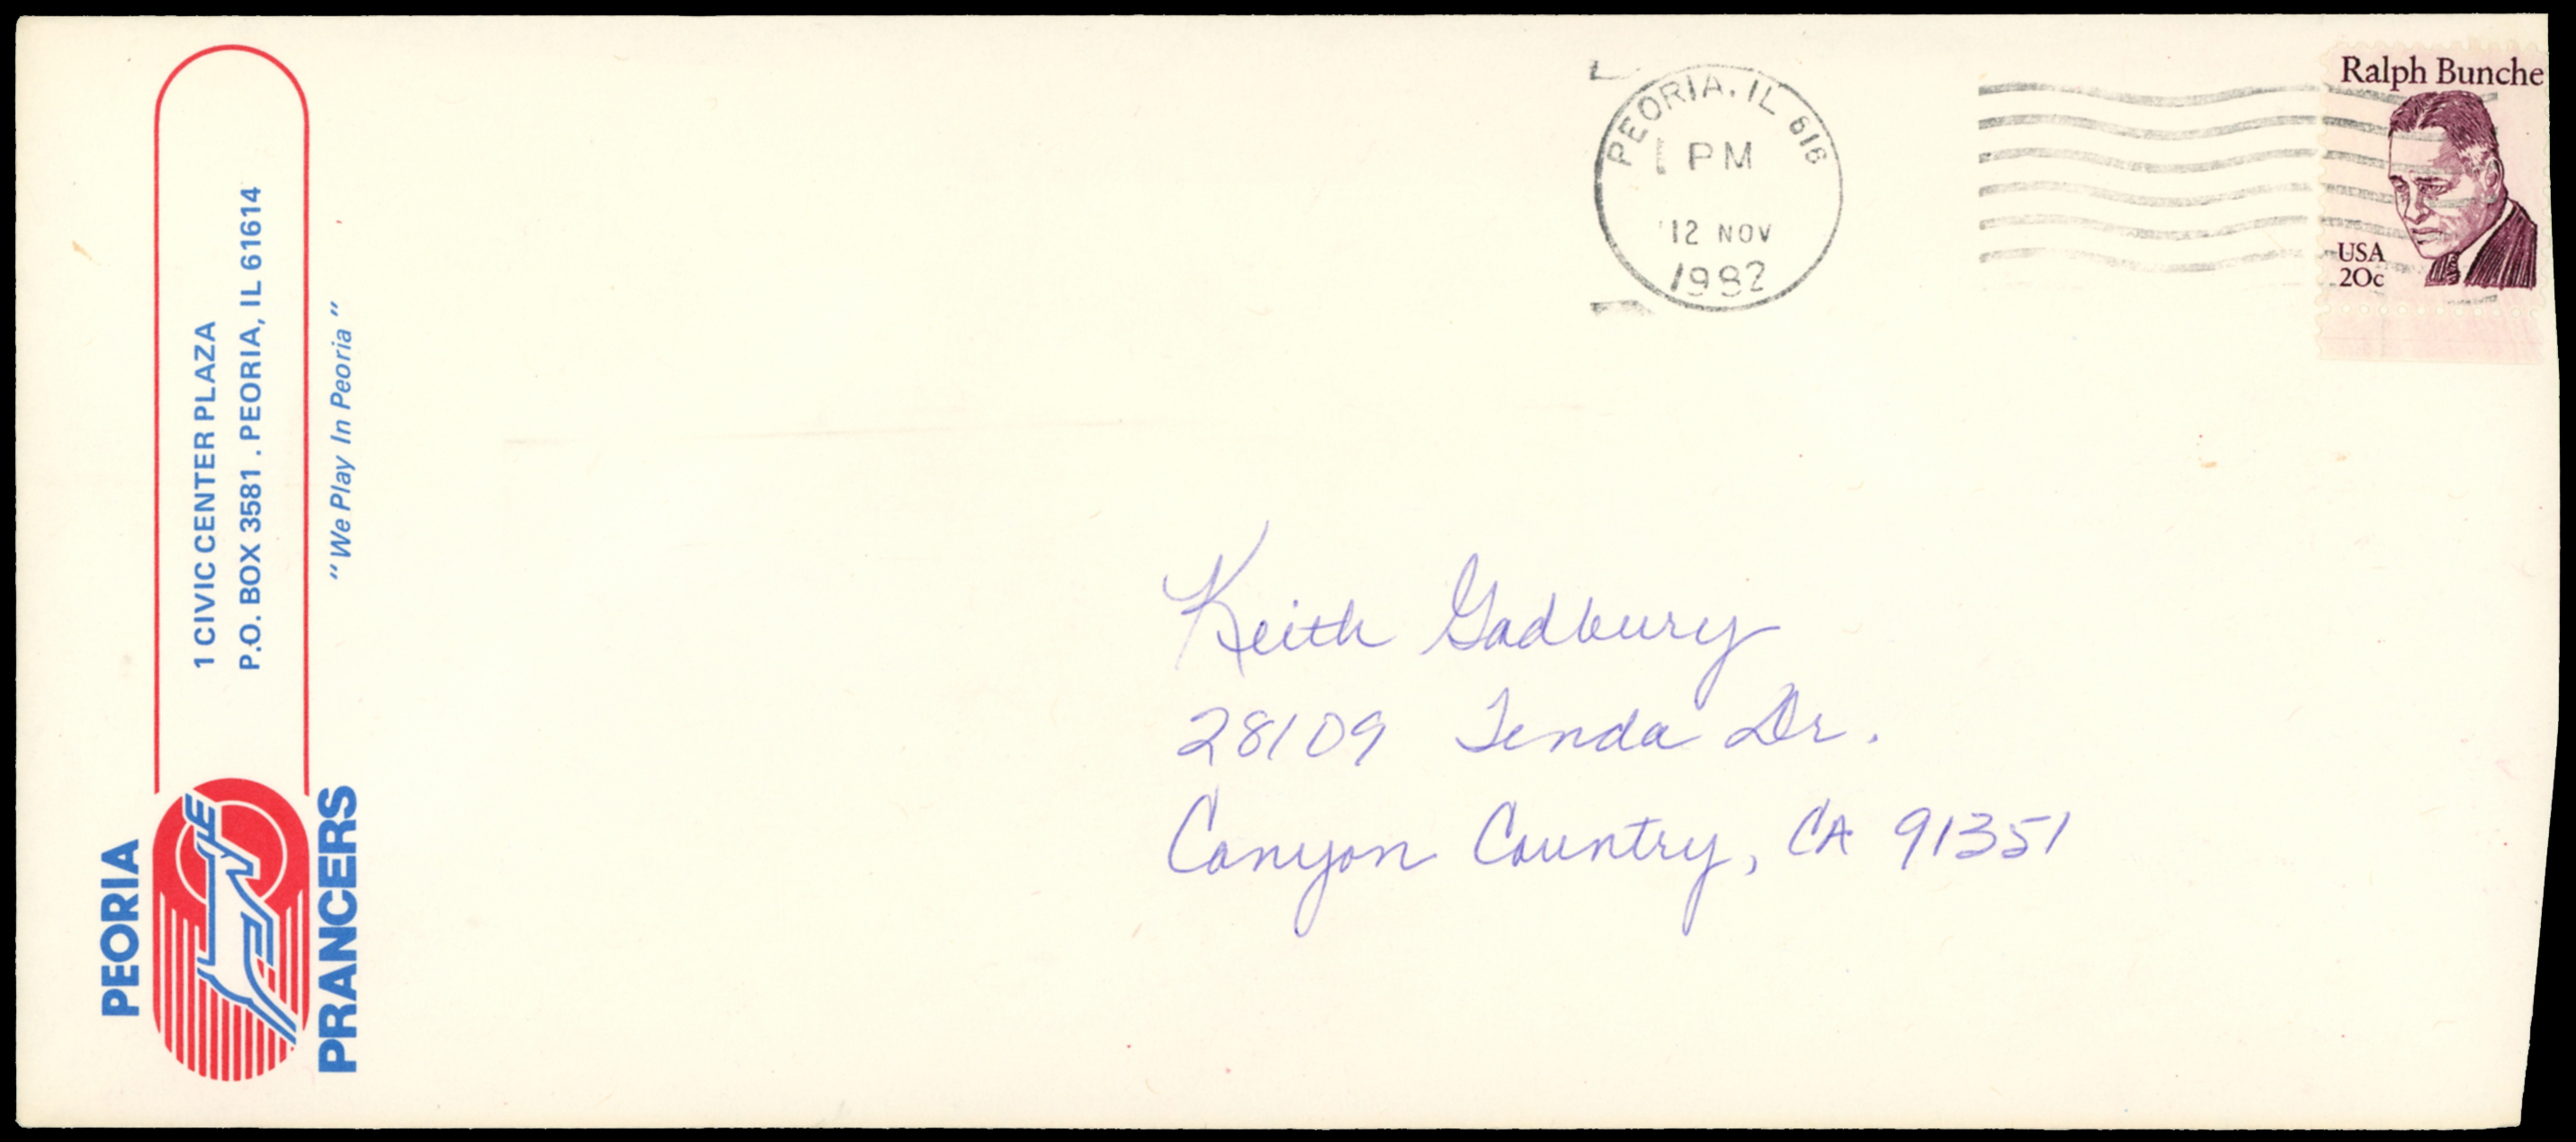 PEORIA
PRANCERS
1 CIVIC CENTER PLAZA
P.O. BOX 3581 . PEORIA, IL 61614
"We Play In Peoria"
PEORIA, IL 616
PM
12 NOV
1982
Ralph Bunche
USA
20c
Keith Gadbury
28109 Tenda Dr.
Canyon Country, CA 91351